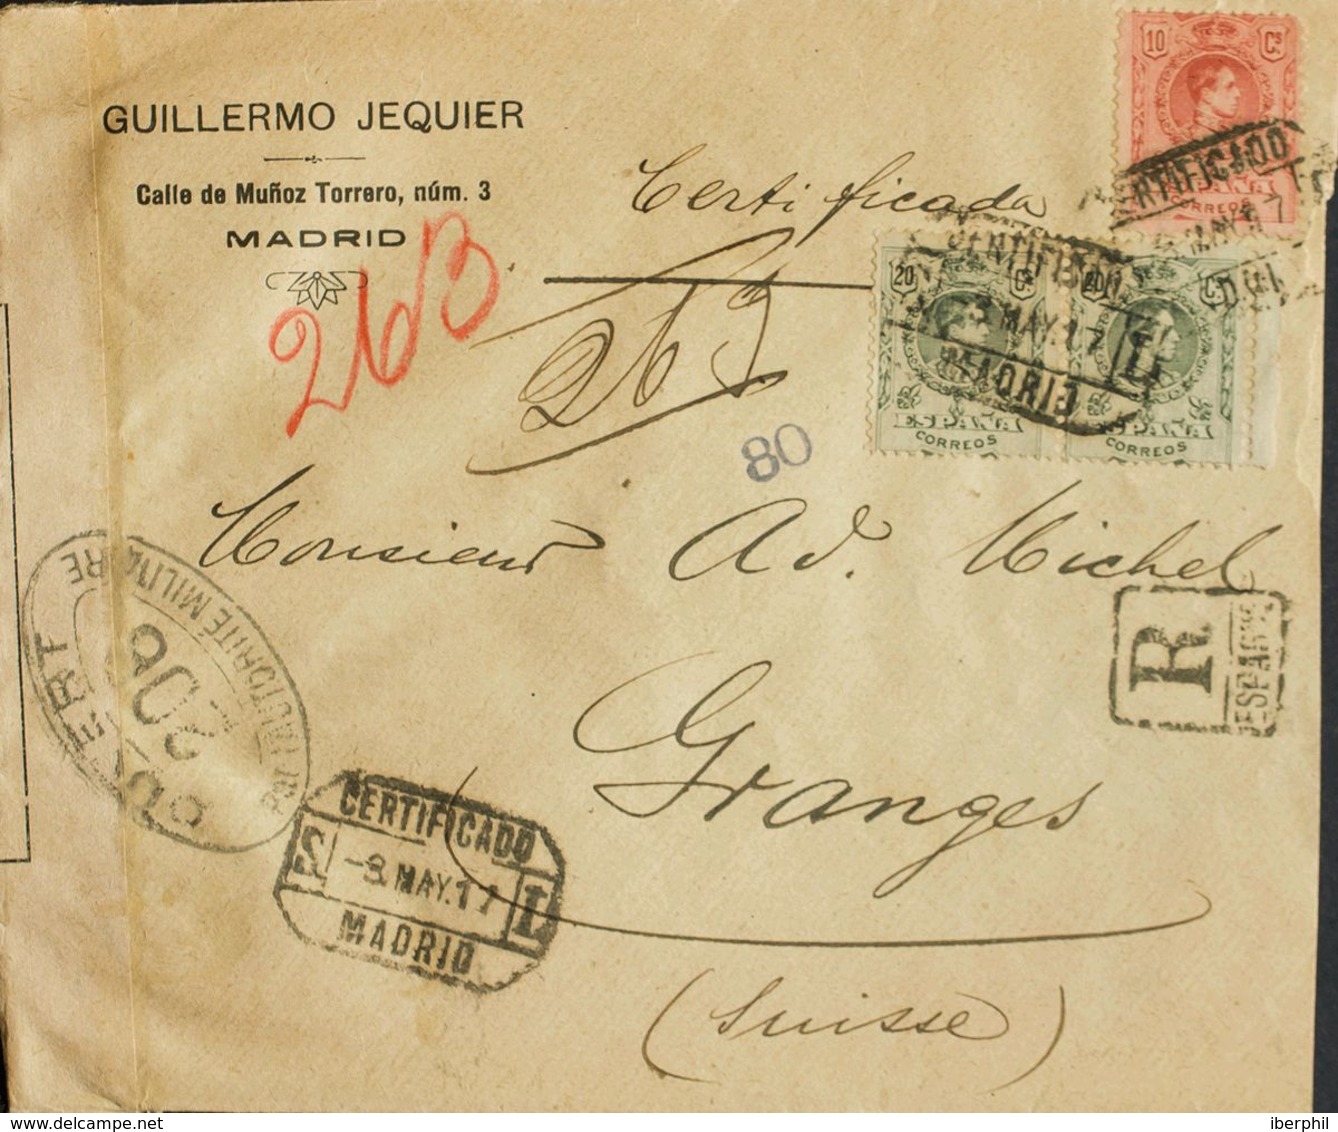 GUILLERMO JEQUIER
Calle de Muñoz Torrero, núm. 3
MADRID
263
Certificada
263
80
10 Cs
ESPAÑA
CORREOS
CERTIFICADO
MAY.17
20 Cs 20 Cs
ESPAÑA ESPAÑA
CORREOS CORREOS
CERTIFICADO
3 MAY.17
MADRID
Monsieur Ad. Michel
Granges
(Suisse)
R
ESPAGNE
OUVERT
208
PAR L'AUTORITÉ MILITAIRE
CERTIFICADO
2 -3.MAY.17 L
MADRID
iberphil